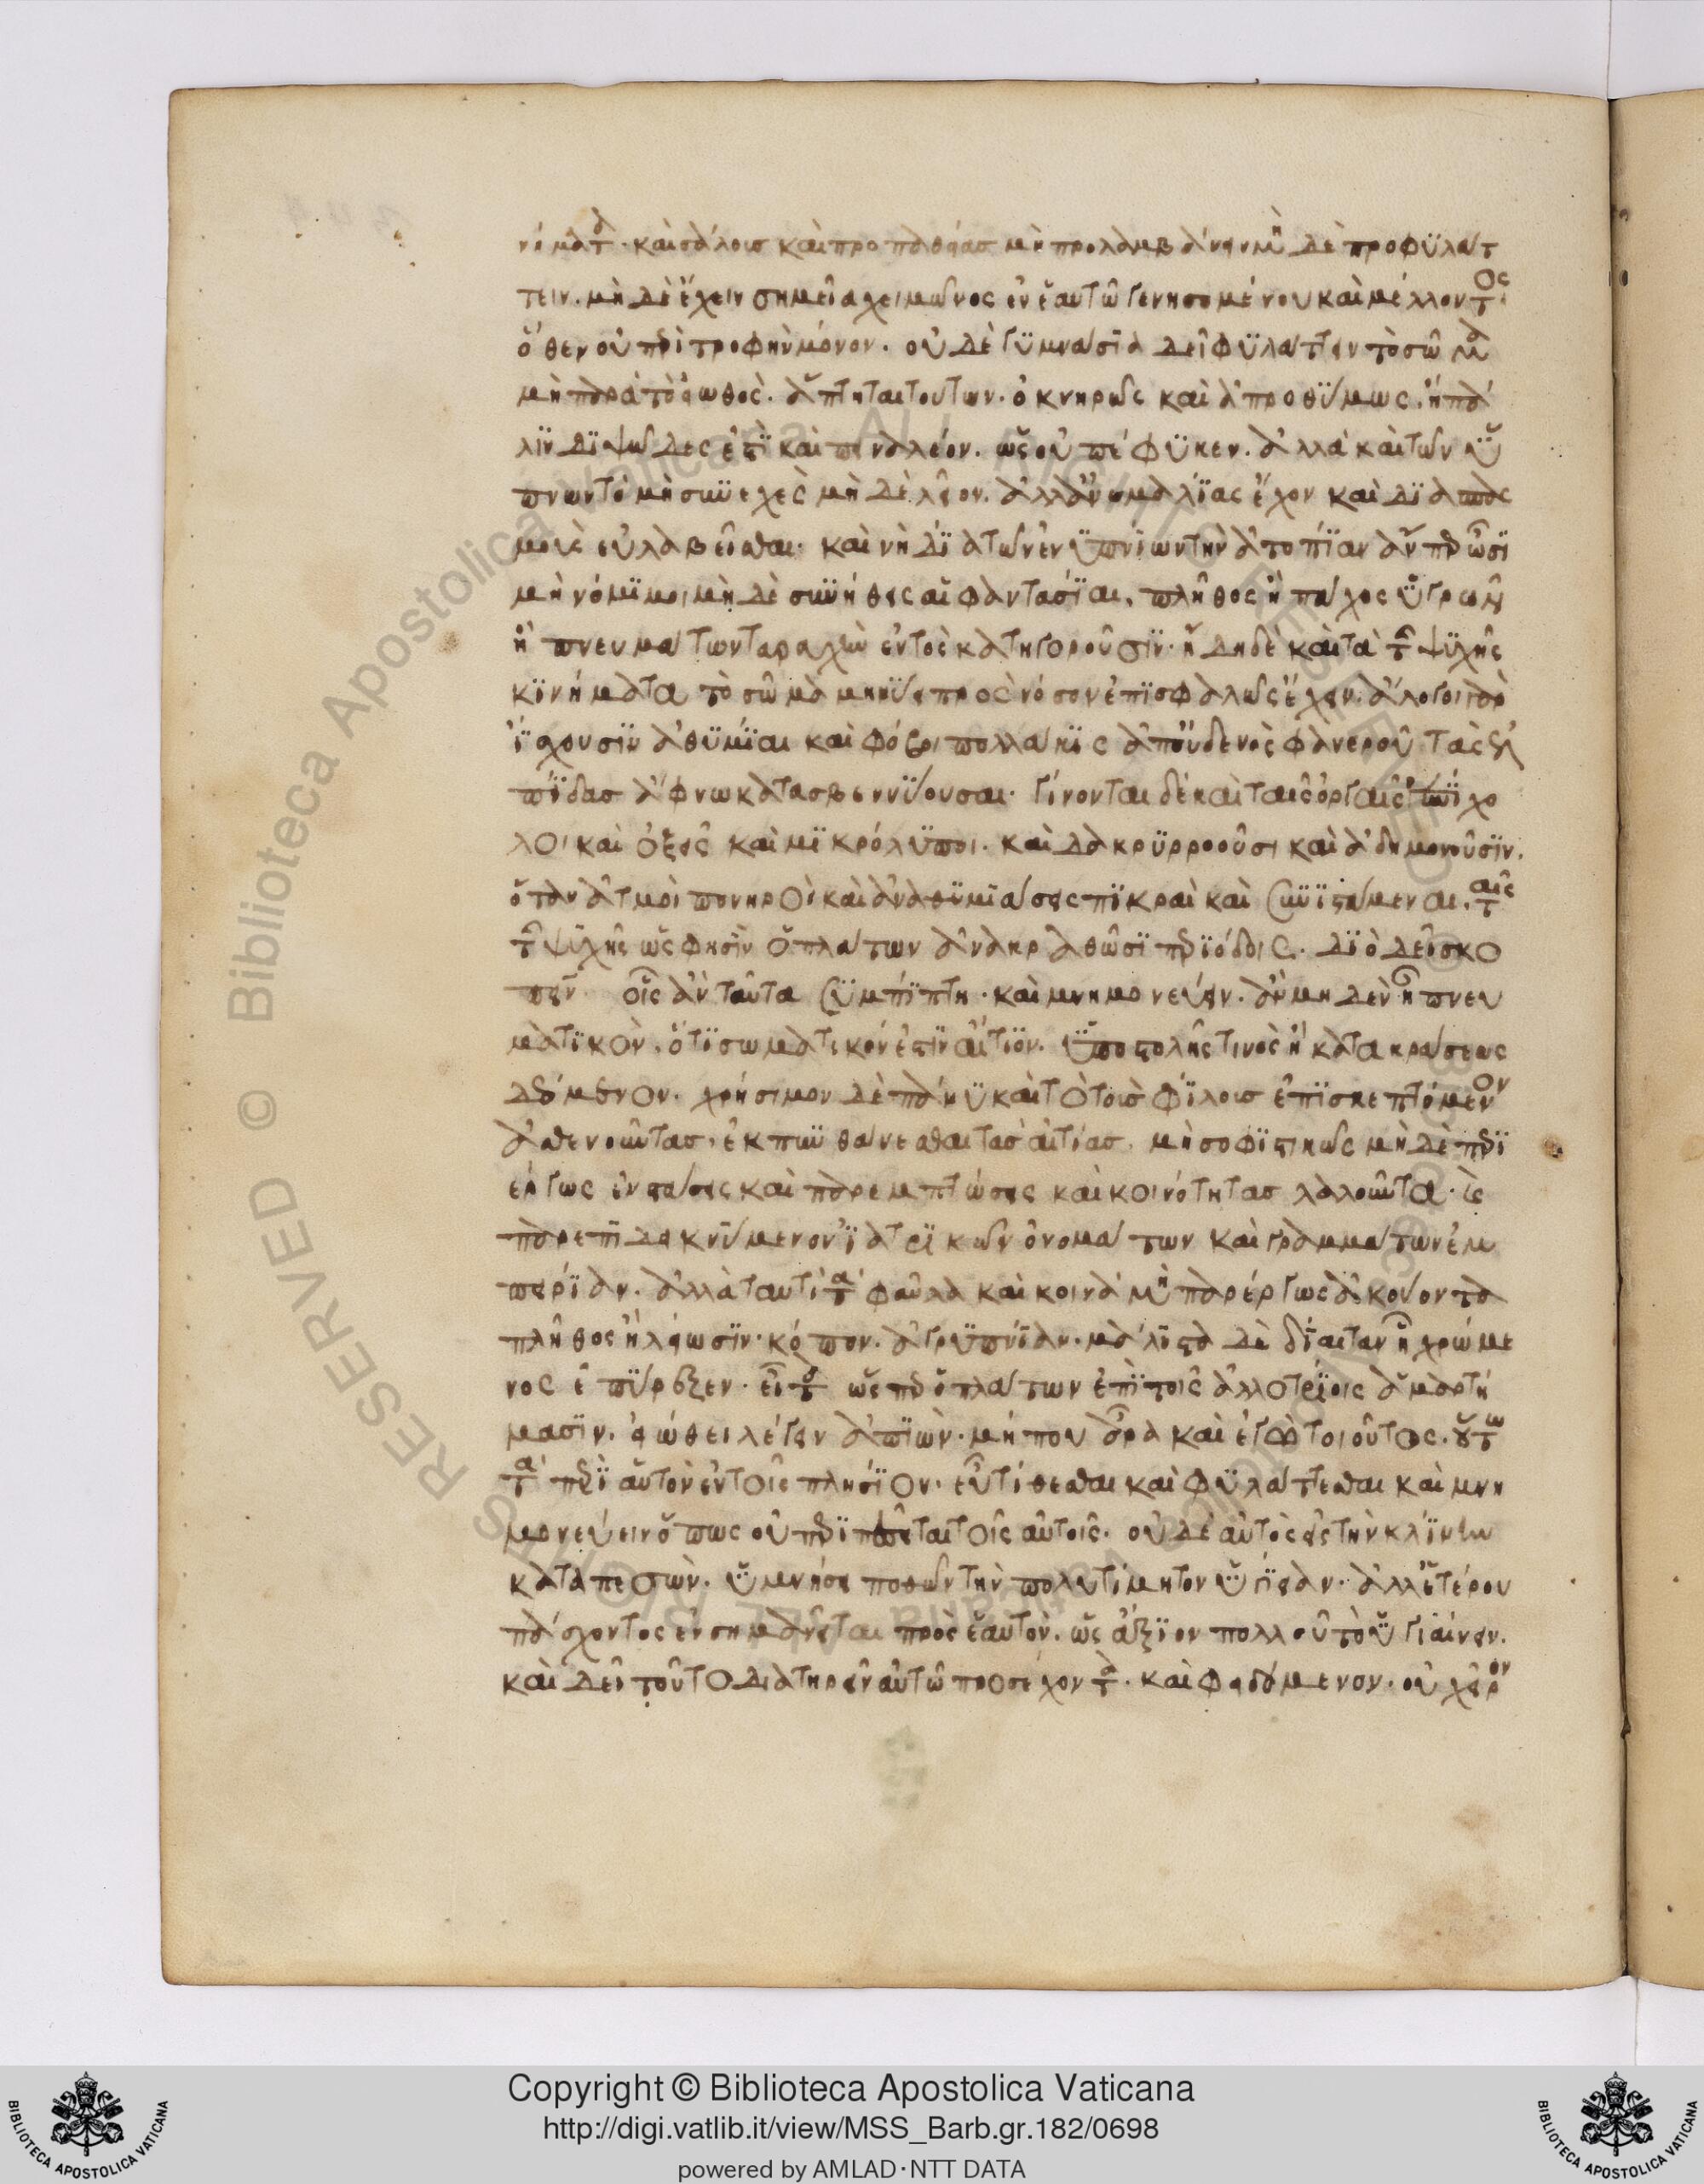 νόματα· καὶ σάλοις καὶ προπαθείας μὴ προλαμβάνειν μὴ δὲ προφυλάτ
τειν. μὴ δὲ ἔχειν σημεῖα χειμῶνος ἐν ἑαυτῶ γενησομένου καὶ μέλλοντος·
ὅθεν οὐ περὶ τροφὴν μόνον. οὐδὲ γυμνάσια δεῖ φυλάττειν τὸ σῶμα
μὴ παρὰ τὸ εἰωθὸς. ἅπτηται τούτων. ὀκνηρῶς καὶ ἀπροθύμως. ἢ πά
λιν διψῶδες ἐστὶ καὶ πειναλέον. ὡς οὐ πέφυκεν. ἀλλὰ καὶ τῶν ὕ
πνων τὸ μὴ συνεχὲς μὴ δὲ λεῖον. ἀλλ' ἀνωμαλίας ἔχον καὶ διασπασ
μοὺς εὐλαβεῖσθαι· καὶ νὴ δία τῶν ἐνυπνίων τὴν ἀτοπίαν ἂν περ ὦσι
μὴ νόμιμοι μὴ δὲ συνήθεις αἱ φαντασίαι. πλῆθος ἢ πάχος ὑγρῶν
ἢ πνευμάτων ταραχὴν ἐντὸς κατηγοροῦσιν· ἤδη δὲ καὶ τὰ τῆς ψυχῆς
κινήματα τὸ σῶμα μηνύει πρὸς νόσον ἐπισφαλῶς ἔχειν. ἄλογοι γὰρ
ἴσχουσιν ἀθυμίαι καὶ φόβοι πολλάκις ἀπ' οὐδενὸς φανεροῦ τὰς ἐλ
πίδας ἄφνω κατασβεννύουσαι· γίνονται δὲ καὶ ταῖς ὀργαῖς ἐπίχο
λοι καὶ ὀξεῖς καὶ μικρόλυποι. καὶ δακρυρροοῦσι καὶ ἀδημονοῦσιν.
ὅταν ἀτμοὶ πονηροὶ καὶ ἀναθυμιάσεις πικραὶ καὶ συνιστάμεναι. ταῖς
τῆς ψυχῆς ὥς φησὶν ὁ πλάτων ἀνακραθῶσι περιόδοις. διὸ δεῖ σκο
πεῖν οἷς ἂν ταῦτα συμπίπτη· καὶ μνημονεύειν. ἂν μηδὲν ἦ πνευ
ματικὸν. ὅτι σωματικόν ἐστὶν αἴτιον. ὑποστολῆς τινὸς ἢ κατακράσεως
δεόμενον. χρήσιμον δὲ πάνυ καὶ τὸ τοὺς φίλους ἐπισκεπτόμενον
ἀσθενοῦντας. ἐκπυνθάνεσθαι τὰς αἰτίας. μὴ σοφιστικῶς μὴ δὲ περι
έργως ἐνστάσεις καὶ παρεμπτώσεις καὶ κοινότητας λαλοῦντα· καὶ
παρεπιδεικνύμενον ἰατρικῶν ὀνομάτων καὶ γραμμάτων ἐμ
πειρίαν. ἀλλὰ ταυτὶ τὰ φαῦλα καὶ κοινὰ μὴ παρέργως ἀκούοντα
πλῆθος ἢ λείωσιν· κόπον. ἀγρυπνίαν. μάλιστα δὲ δίαιταν ἧ χρώμε
νος ἐπύρεξεν· εἶτα ὥσπερ ὁ πλάτων ἐπὶ τοῖς ἀλλοτρίοις ἁμαρτή
μασιν. εἰώθει λέγειν ἀπιὼν· μή που ἆρα καὶ ἐγὼ τοιοῦτος. οὕτω
τὰ περὶ αὑτὸν ἐν τοῖς πλησίον. εὖ τίθεσθαι καὶ φυλάττεσθαι καὶ μνη
μονεύειν ὅπως οὐ περιπεσεῖται τοῖς αὐτοῖς. οὐδὲ αὐτὸς εἰς τὴν κλίνην
καταπεσὼν. ὑμνήσει ποθῶν τὴν πολυτίμητον ὑγίειαν. ἀλλ' ἑτέρου
πάσχοντος ἐνσημανεῖται πρὸς ἑαυτὸν. ὡς ἄξιον πολλοῦ τὸ ὑγιαίνειν.
καὶ δεῖ τοῦτο διατηρεῖν αὑτῶ προσέχοντα. καὶ φειδόμενον. οὐ χεῖρον
Copyright © Biblioteca Apostolica Vaticana
http://digi.vatlib.it/view/MSS_Barb.gr.182/0698
powered by AMLAD·NTT DATA